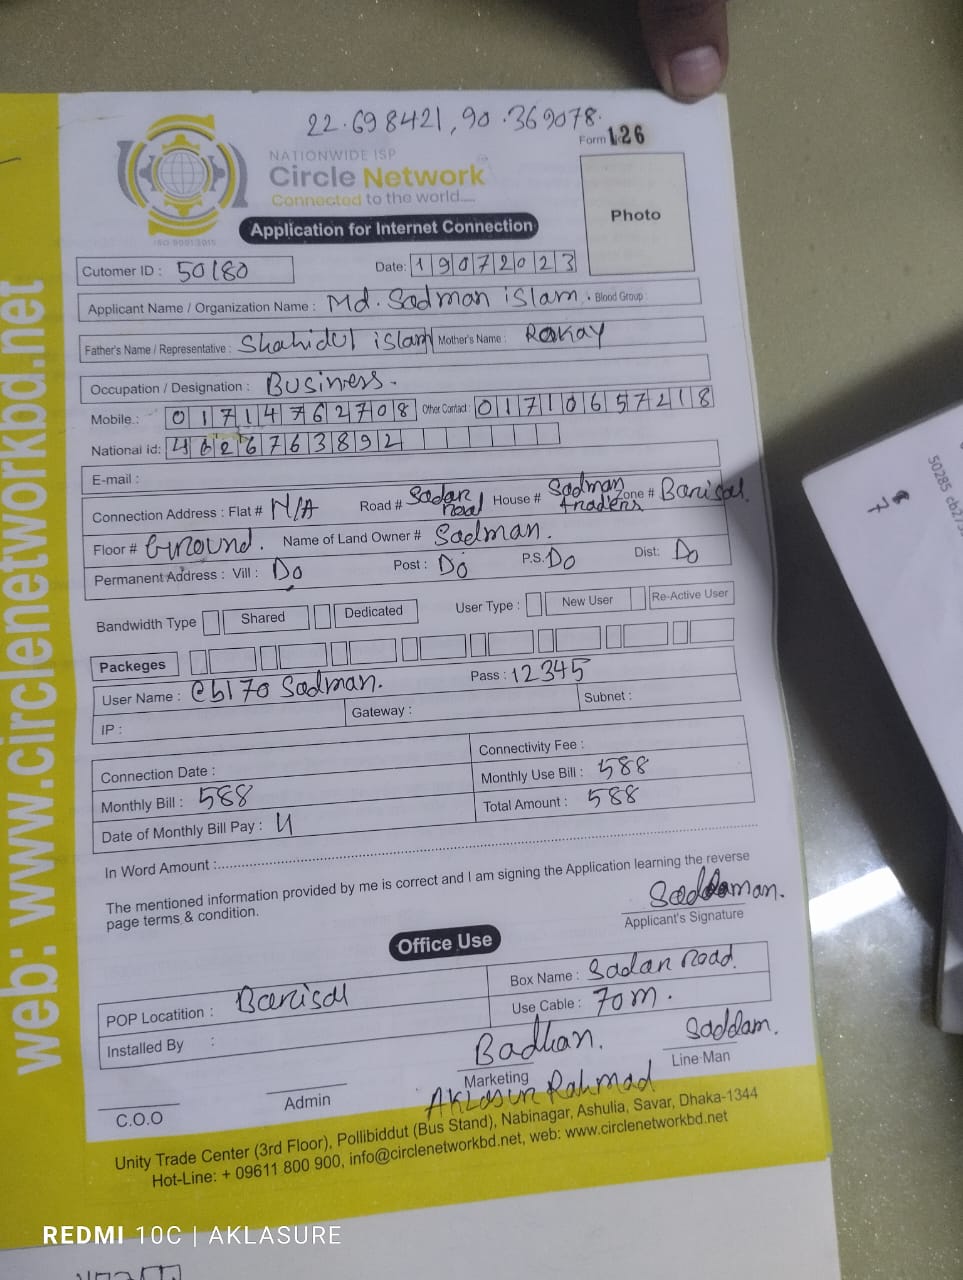 22.698421, 90.369078.
Form 126
NATIONWIDE ISP
Circle Network
Connected to the world....
ISO 9001:2015
Application for Internet Connection
Photo
Cutomer ID : 50180
Date: 19072023
Applicant Name / Organization Name : Md. Sadman islam. Blood Group :
Father's Name / Representative : Shahidul islam Mother's Name :
Occupation / Designation : Business.
Mobile.: 01714762708 Other Contact : 01710657218
National id: 4626763892
E-mail :
Connection Address : Flat # N/A Road # Sadar road House # Sadman traders Zone # Barisal.
Floor # Ground. Name of Land Owner # Sadman.
Permanent Address : Vill : Do Post : Do P.S. Do Dist: Do
Bandwidth Type Shared Dedicated User Type : New User Re-Active User
Packeges
User Name : cb170 Sadman. Pass : 12345
IP : Gateway : Subnet :
Connection Date : Connectivity Fee :
Monthly Bill : 588 Monthly Use Bill : 588
Date of Monthly Bill Pay : 4 Total Amount : 588
In Word Amount :
The mentioned information provided by me is correct and I am signing the Application learning the reverse
page terms & condition.
Applicant's Signature
Office Use
POP Locatition : Barisal Box Name : Sadar road.
Installed By : Use Cable : 70m.
Badhan. Saddam.
C.O.O Admin Marketing Line Man
Aklasur Rahmad
Unity Trade Center (3rd Floor), Pollibiddut (Bus Stand), Nabinagar, Ashulia, Savar, Dhaka-1344
Hot-Line: + 09611 800 900, info@circlenetworkbd.net, web: www.circlenetworkbd.net
web: www.circlenetworkbd.net
7
REDMI 10C | AKLASURE